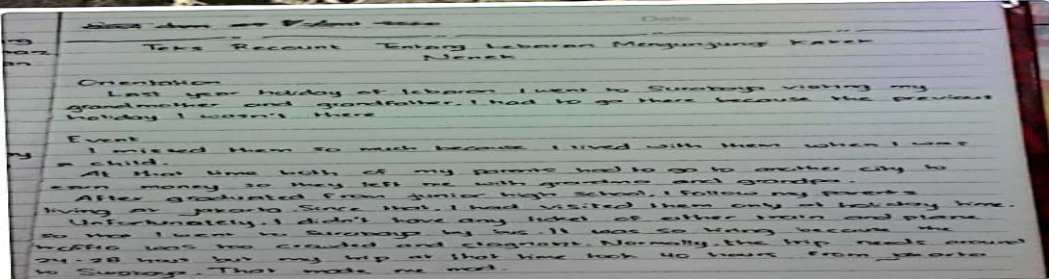 Teks Recount Tentang Lebaran Mengunjungi Kakek
Nenek
Orientation
Last year holiday of lebaran I went to Surabaya visiting my
grandmother and grandfather. I had to go there because the previous
holiday I wasn't there
Event
I missed them so much because I lived with them when I was
a child.
At that time both of my parents had to go to another city to
earn money so they left me with grandma and grandpa.
After graduated from junior high school I follow my parents
living at jakarta. Since that I had visited them only at holiday time.
Unfortunately, I didn't have any ticket of either train and plane
so I went to Surabaya by bus. It was so tiring because the
traffic was too crowded and stagnant. Normally, the trip needs around
24-28 hours but my trip at that time took 40 hours from jakarta
to Surabaya. That made me mad.